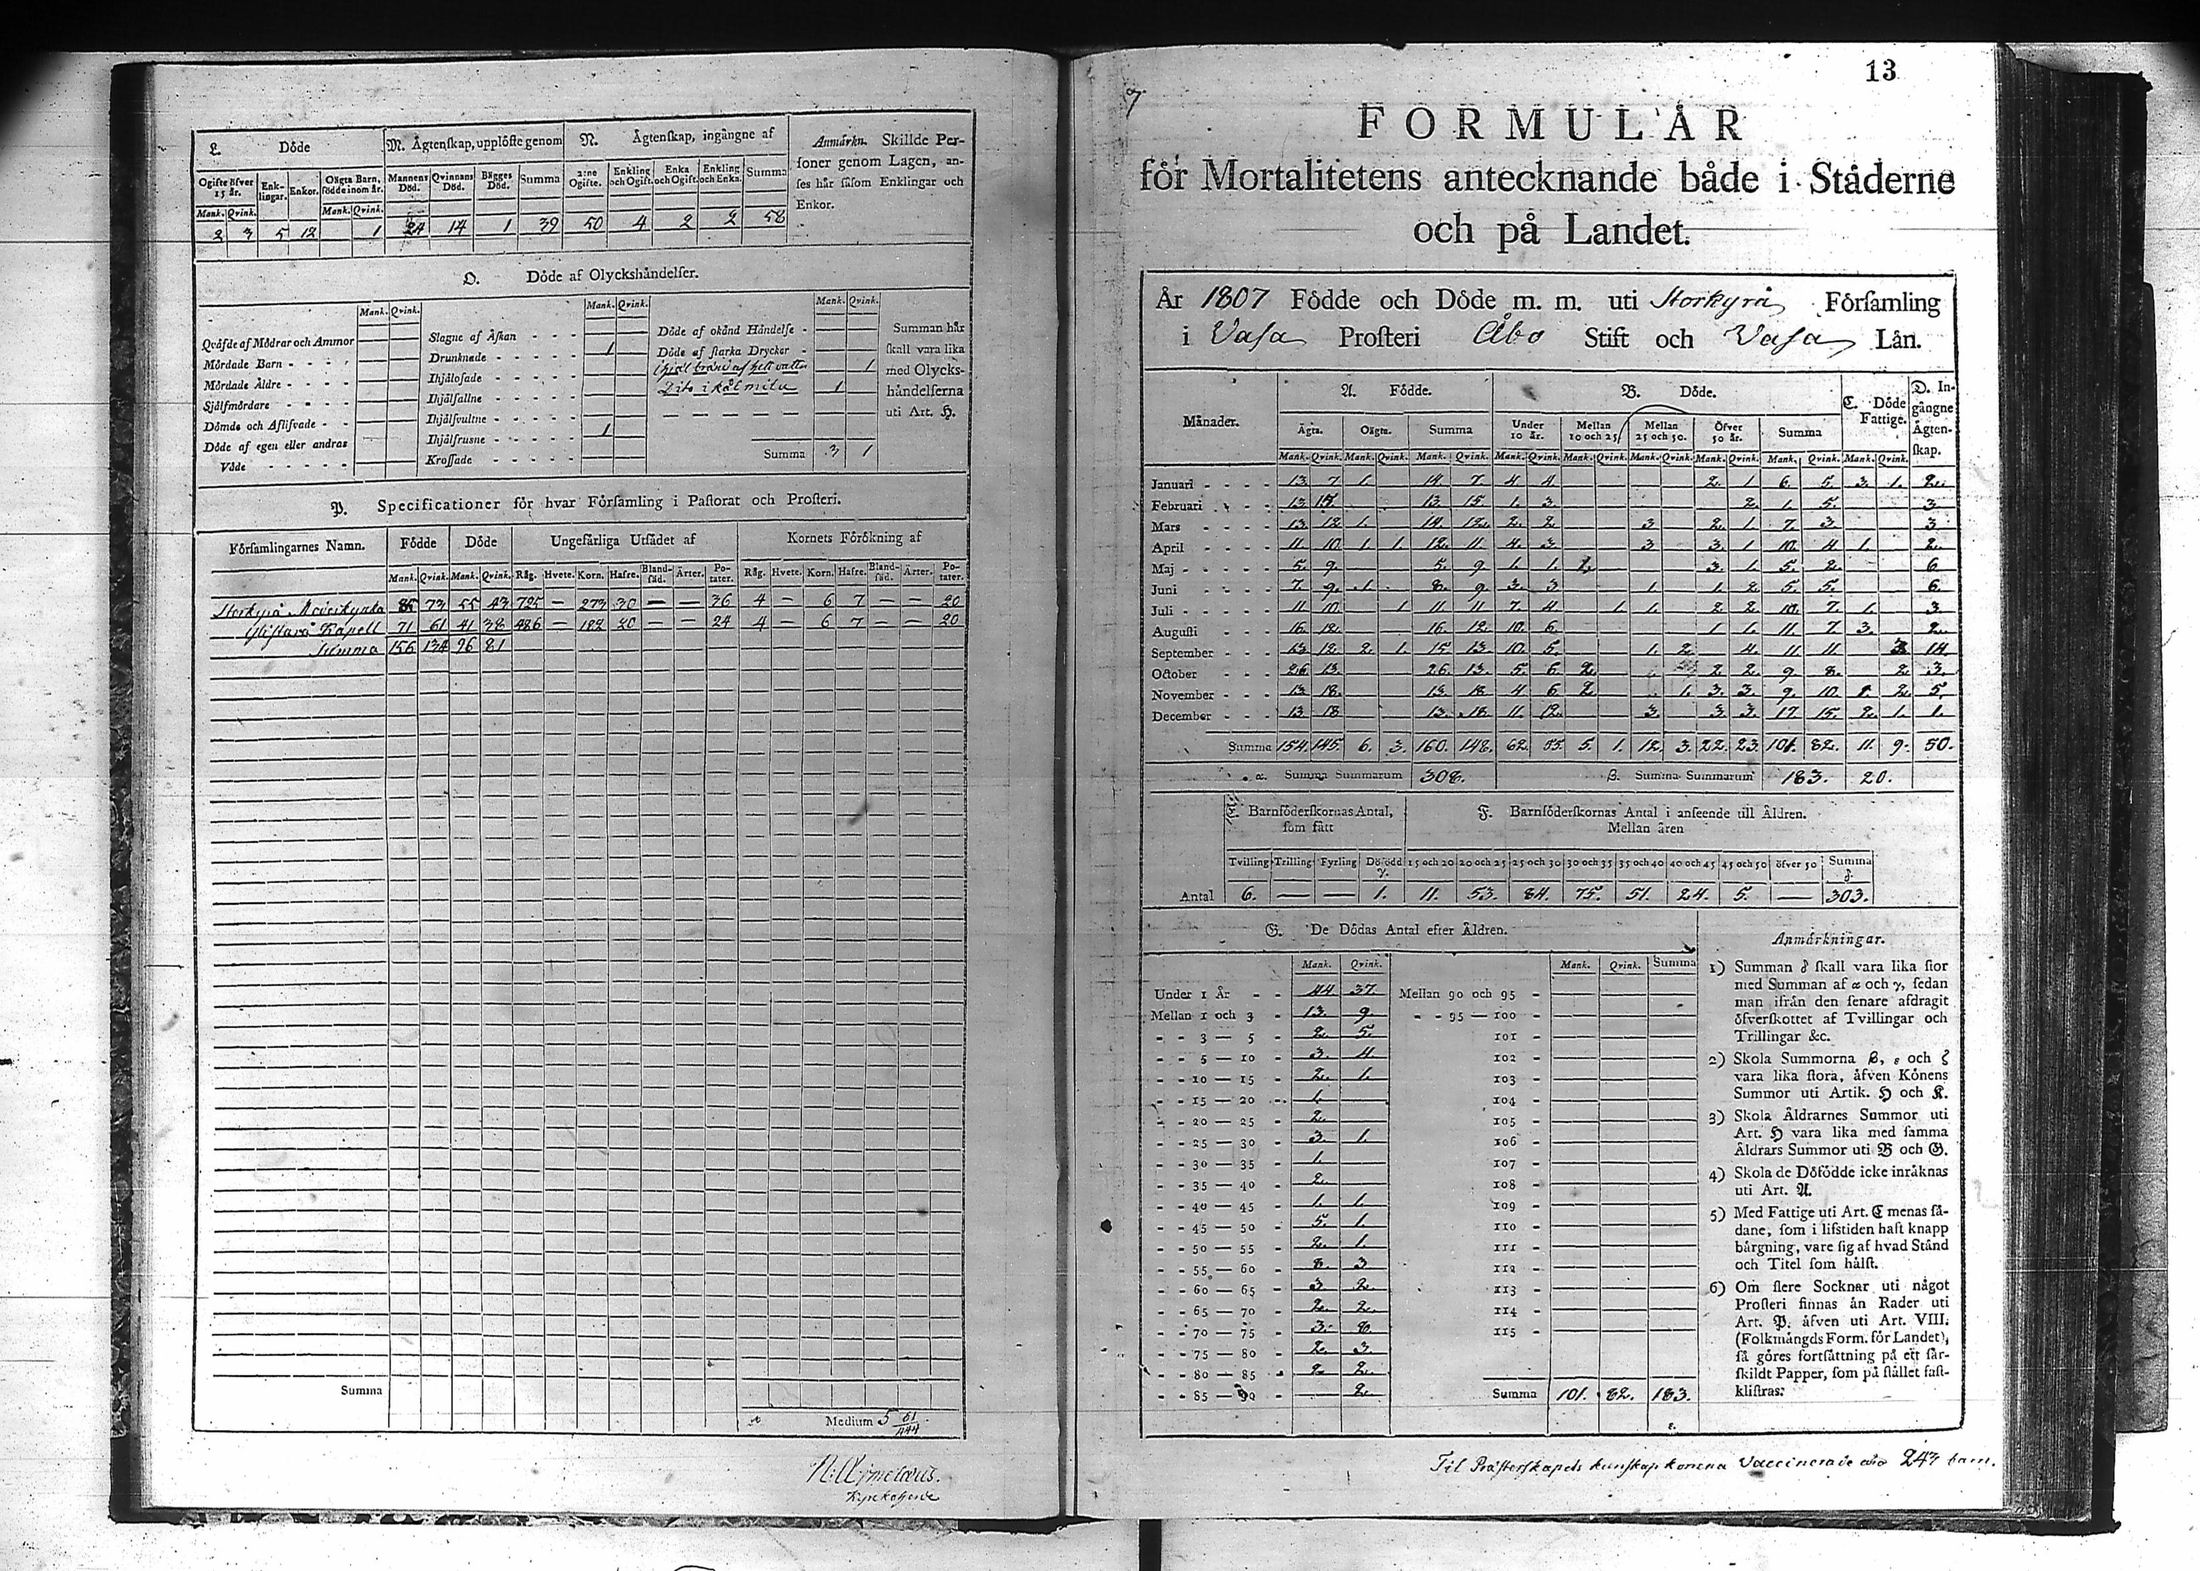 L. Döde
M. Ägtenskap, upplöste genom
N. Ägtenskap, ingångne af
Anmärkn. Skillde Per-
soner genom Lagen, an-
ses här såsom Enklingar och
Enkor.
Ogifte öfver 15 år. Enk-lingar. Enkor. Oägta Barn, födde inom år. Mannens Död. Qvinnans Död. Bägges Död. Summa 2:ne Ogifte. Enkling och Ogift. Enka och Ogift. Enkling och Enka. Summa
Mank. Qvink. Mank. Qvink.
2 3 5 12 1 24 14 1 39 50 4 2 2 58
O. Döde af Olyckshändelser.
Mank. Qvink. Mank. Qvink. Mank. Qvink.
Qväfde af Mödrar och Ammor
Mördade Barn
Mördade Äldre
Självmördare
Dömde och Aflifvade
Döde af egen eller andras
Våde
Slagne af Åskan
Drunknade 1
Ihjälosade
Ihjälfallne
Ihjälsvultne
Ihjälfrusne 1
Krossade
Döde af okänd Händelse
Döde af starka Drycker
ihjäl bränd af hett vatten 1
Dito i kålmila 1
Summa 3 1
Summan här
skall vara lika
med Olycks-
händelserna
uti Art. H.
P. Specificationer för hvar Församling i Pastorat och Prosteri.
Församlingarnes Namn. Födde Döde Ungefärliga Utsädet af Kornets Förökning af
Mank. Qvink. Mank. Qvink. Råg. Hvete. Korn. Hafre. Bland-säd. Ärter. Po-tater. Råg. Hvete. Korn. Hafre. Bland-säd. Ärter. Po-tater.
Storkyrå Moderkyrka 85 73 55 43 725 — 273 30 — — 36 4 — 6 7 — — 20
Ylistaro Kapell 71 61 41 38 486 — 182 20 — — 24 4 — 6 7 — — 20
Summa 156 134 96 81
Summa
Medium 5 61/444
Kyrkoherde
13
7
FORMULÄR
för Mortalitetens antecknande både i Städerne
och på Landet.
År 1807 Födde och Döde m. m. uti Storkyrå Församling
i Vasa Prosteri Åbo Stift och Vasa Län.
Månader. A. Födde. B. Döde. C. Döde Fattige. D. In-gångne Ägten-skap.
Ägta. Oägta. Summa Under 10 år. Mellan 10 och 25. Mellan 25 och 50. Öfver 50 år. Summa
Mank. Qvink. Mank. Qvink. Mank. Qvink. Mank. Qvink. Mank. Qvink. Mank. Qvink. Mank. Qvink. Mank. Qvink. Mank. Qvink.
Januari 13. 7. 1. 14 7. 4 4 2. 1 6. 5. 3. 1. 2.
Februari 13 15. 13. 15 1. 3. 2. 1. 5. 3
Mars 13 12 1. 14. 12. 2. 2 3 2. 1 7. 3. 3
April 11. 10. 1. 1. 12. 11. 4. 3. 3 3. 1 10. 4 1. 2.
Maj 5. 9. 5. 9. 1. 1. 1. 3. 1. 5. 2. 6
Juni 7. 9. 1. 8. 9. 3. 3 1. 1. 2. 5. 5. 6.
Juli 11 10. 1 11 11 7. 4 1 1. 2 2 10. 7. 1. 3
Augusti 16. 12. 16. 12 10. 6. 1 1. 11. 7. 3. 2.
September 13 12. 2. 1. 15. 13. 10. 5. 1. 2. 4. 11 11. 3 14.
October 26. 13. 26. 13. 5. 6 2. 2 2. 9. 8. 2. 3.
November 13 18. 13 18 4 6 2 1. 3. 3. 9. 10. 1. 2. 5.
December 13 18 13. 18. 11. 12. 3. 3. 3. 17 15. 2. 1. 1.
Summa 154. 145. 6. 3. 160. 148. 62. 55. 5. 1. 12. 3. 22. 23. 101. 82. 11. 9. 50.
α. Summa Summarum 308. β. Summa Summarum 183. 20.
E. Barnföderskornas Antal,
som fått
F. Barnföderskornas Antal i anseende till Åldren.
Mellan åren
Tvilling Trilling Fyrling Dödfödd γ. 15 och 20 20 och 25 25 och 30 30 och 35 35 och 40 40 och 45 45 och 50 öfver 50 Summa δ.
Antal 6. — — 1. 11. 53. 84. 75. 51. 24. 5. — 303.
G. De Dödas Antal efter Åldren.
Mank. Qvink. Mank. Qvink. Summa
Under 1 År 44 37. Mellan 90 och 95
Mellan 1 och 3 13. 9. 95 — 100
3 — 5 2. 5. 101
5 — 10 3. 4. 102
10 — 15 2. 1. 103
15 — 20 1. 104
20 — 25 2. 105
25 — 30 3. 1. 106
30 — 35 1. 107
35 — 40 2. 108
40 — 45 1. 1. 109
45 — 50 5. 1 110
50 — 55 2. 1 111
55 — 60 8. 3 112
60 — 65 3 2. 113
65 — 70 2. 2. 114
70 — 75 3. 8. 115
75 — 80 2. 3.
80 — 85 2 2.
85 — 90 2. Summa 101. 82. 183.
ε.
Anmärkningar.
1) Summan δ skall vara lika stor
med Summan af α och γ, sedan
man ifrån den senare afdragit
öfverskottet af Tvillingar och
Trillingar &c.
2) Skola Summorna β, ε och ζ
vara lika stora, äfven Könens
Summor uti Artik. H och K.
3) Skola Åldrarnes Summor uti
Art. H vara lika med samma
Åldrars Summor uti B och G.
4) Skola de Döfödde icke inräknas
uti Art. A.
5) Med Fattige uti Art. C menas så-
dane, som i lifstiden haft knapp
bärgning, vare sig af hvad Stånd
och Titel som hälst.
6) Om flere Socknar uti något
Prosteri finnas än Rader uti
Art. P. äfven uti Art. VIII.
(Folkmängds Form. för Landet),
så göres fortsättning på ett sär-
skildt Papper, som på stället fast-
klistras.
Til Prästerskapets kunskap komna Vaccinerade äro 247 barn.